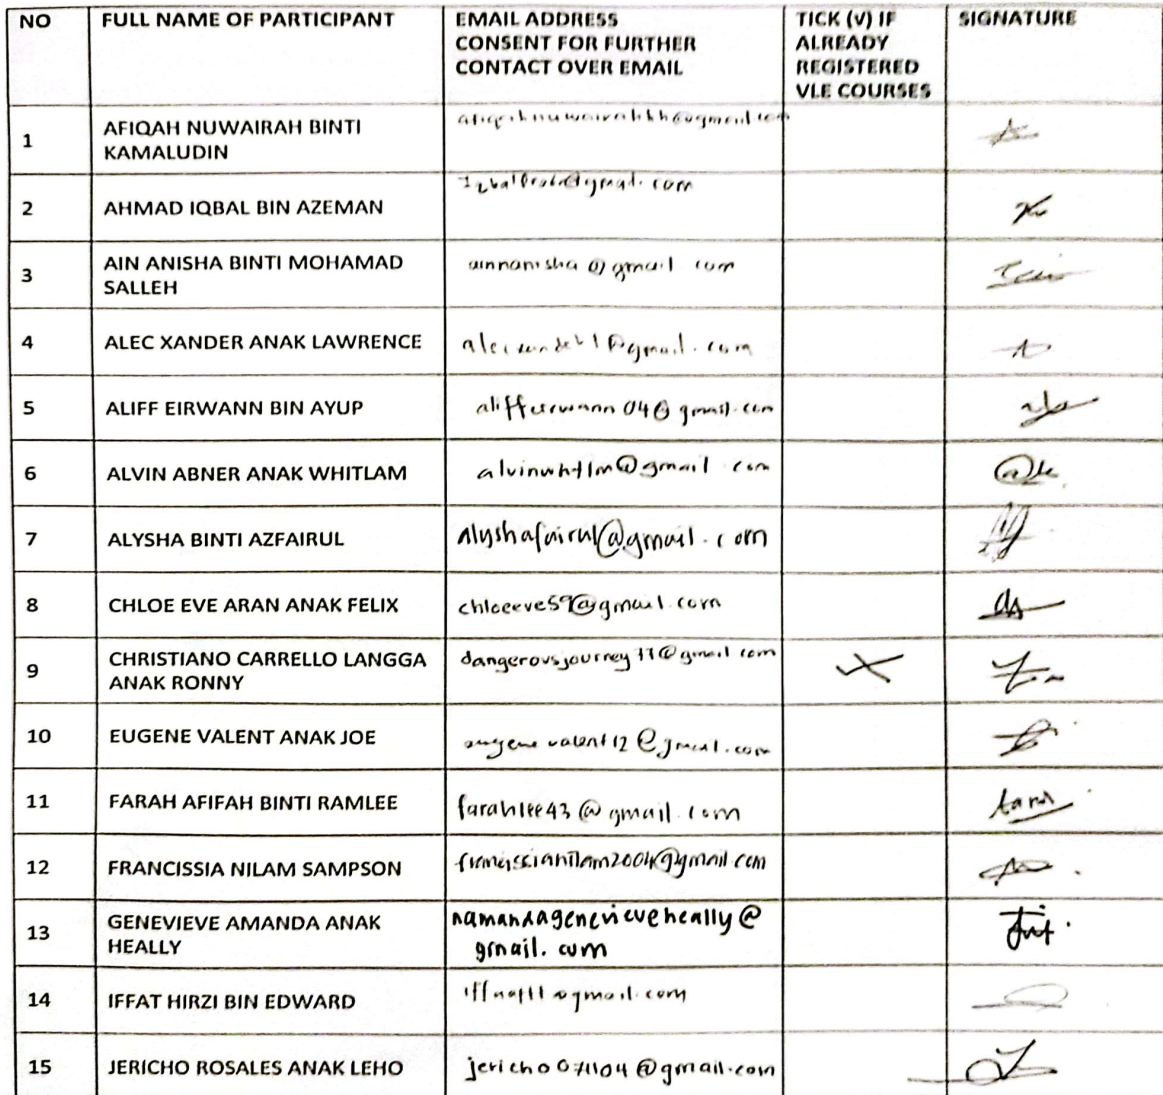 NO FULL NAME OF PARTICIPANT EMAIL ADDRESS CONSENT FOR FURTHER CONTACT OVER EMAIL TICK (V) IF ALREADY REGISTERED VLE COURSES SIGNATURE
1 AFIQAH NUWAIRAH BINTI
KAMALUDIN
2 AHMAD IQBAL BIN AZEMAN
3 AIN ANISHA BINTI MOHAMAD
SALLEH
ainnanisha@gmail.com
4 ALEC XANDER ANAK LAWRENCE
5 ALIFF EIRWANN BIN AYUP
aliffeirwann04@gmail.com
6 ALVIN ABNER ANAK WHITLAM
alvinwhtlm@gmail.com
7 ALYSHA BINTI AZFAIRUL
alyshafairul@gmail.com
8 CHLOE EVE ARAN ANAK FELIX
chloeeve59@gmail.com
9 CHRISTIANO CARRELLO LANGGA
ANAK RONNY
dangerousjourney77@gmail.com
10 EUGENE VALENT ANAK JOE
eugenevalent12@gmail.com
11 FARAH AFIFAH BINTI RAMLEE
farahlee43@gmail.com
12 FRANCISSIA NILAM SAMPSON
francissianilam2004@gmail.com
13 GENEVIEVE AMANDA ANAK
HEALLY
namandagenevieveheally@
gmail.com
14 IFFAT HIRZI BIN EDWARD
15 JERICHO ROSALES ANAK LEHO
jericho071104@gmail.com